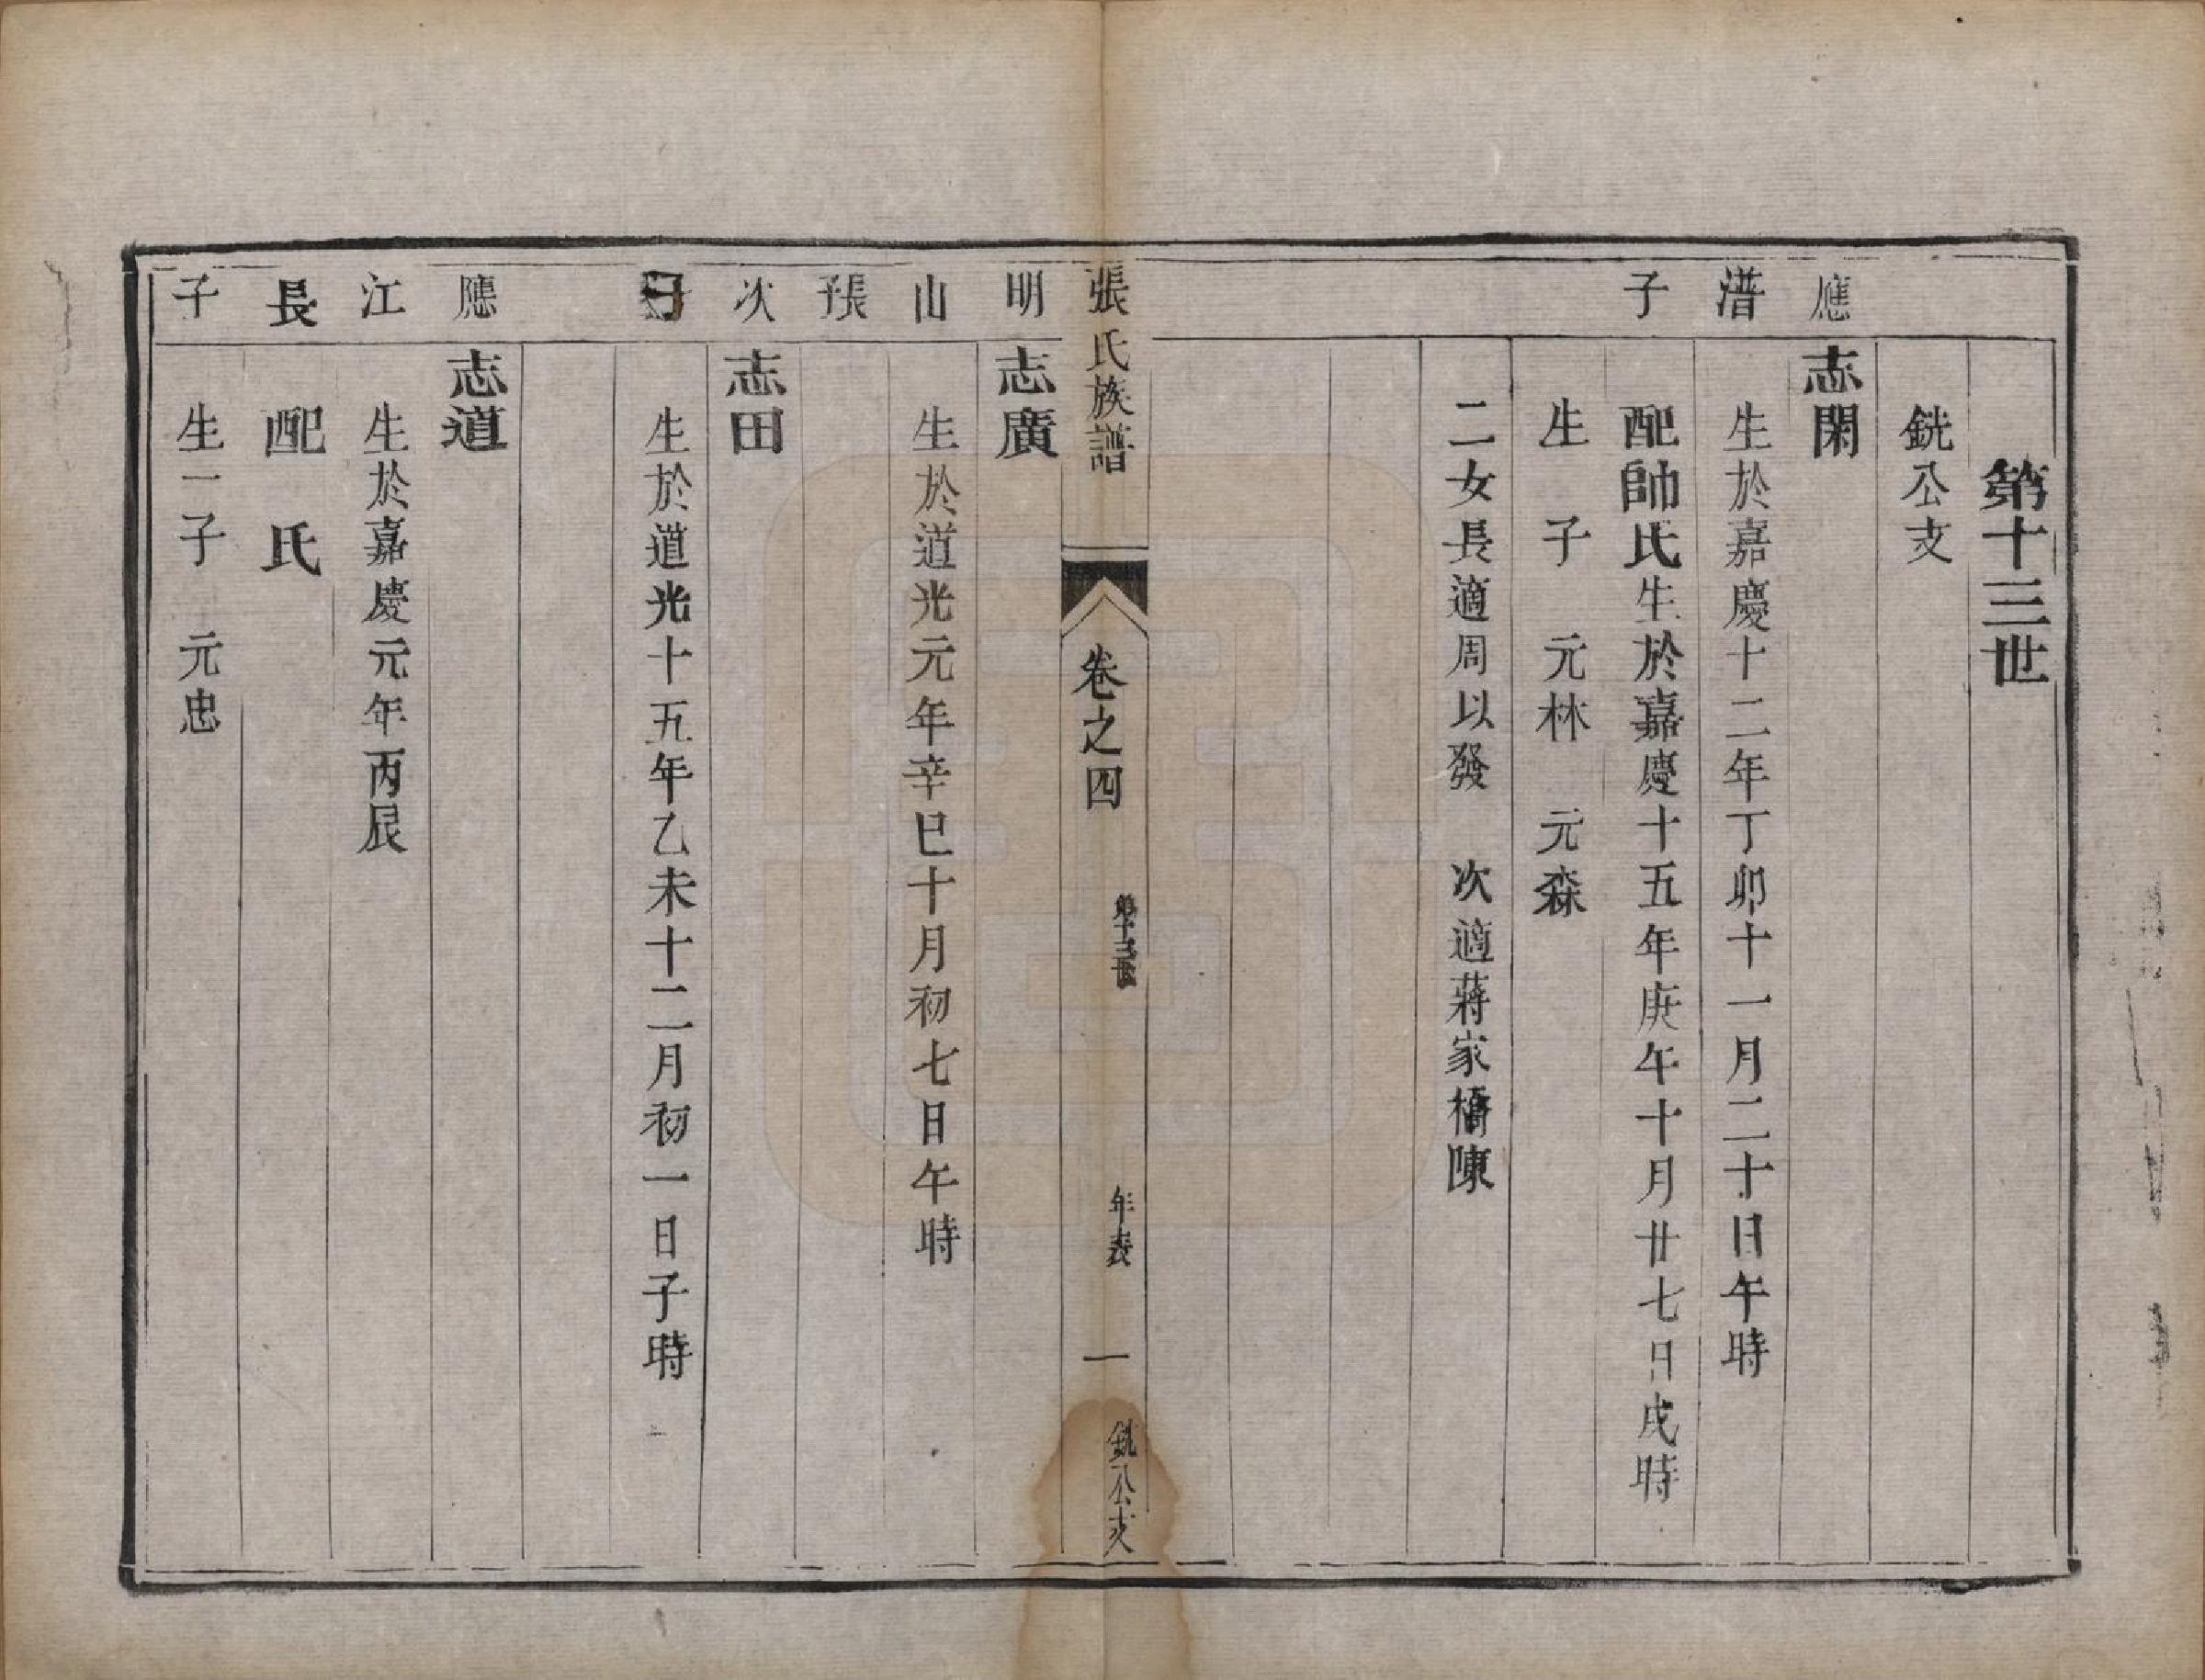 第十三世
銑公支
應
志閑
潽
生於嘉慶十二年丁卯十一月二十日午時
子
配帥氏生於嘉慶十五年庚午十月廿七日戌時
生　子　元林　元森
二女長適周以發　次適蔣家橋陳
張氏族譜　卷之四　第十三世　年表　一　銑公支
明
志廣
山
生於道光元年辛巳十月初七日午時
長子
次
志田
生於道光十五年乙未十二月初一日子時
應
志道
江
生於嘉慶元年丙辰
長
配　氏
子
生一子　元忠